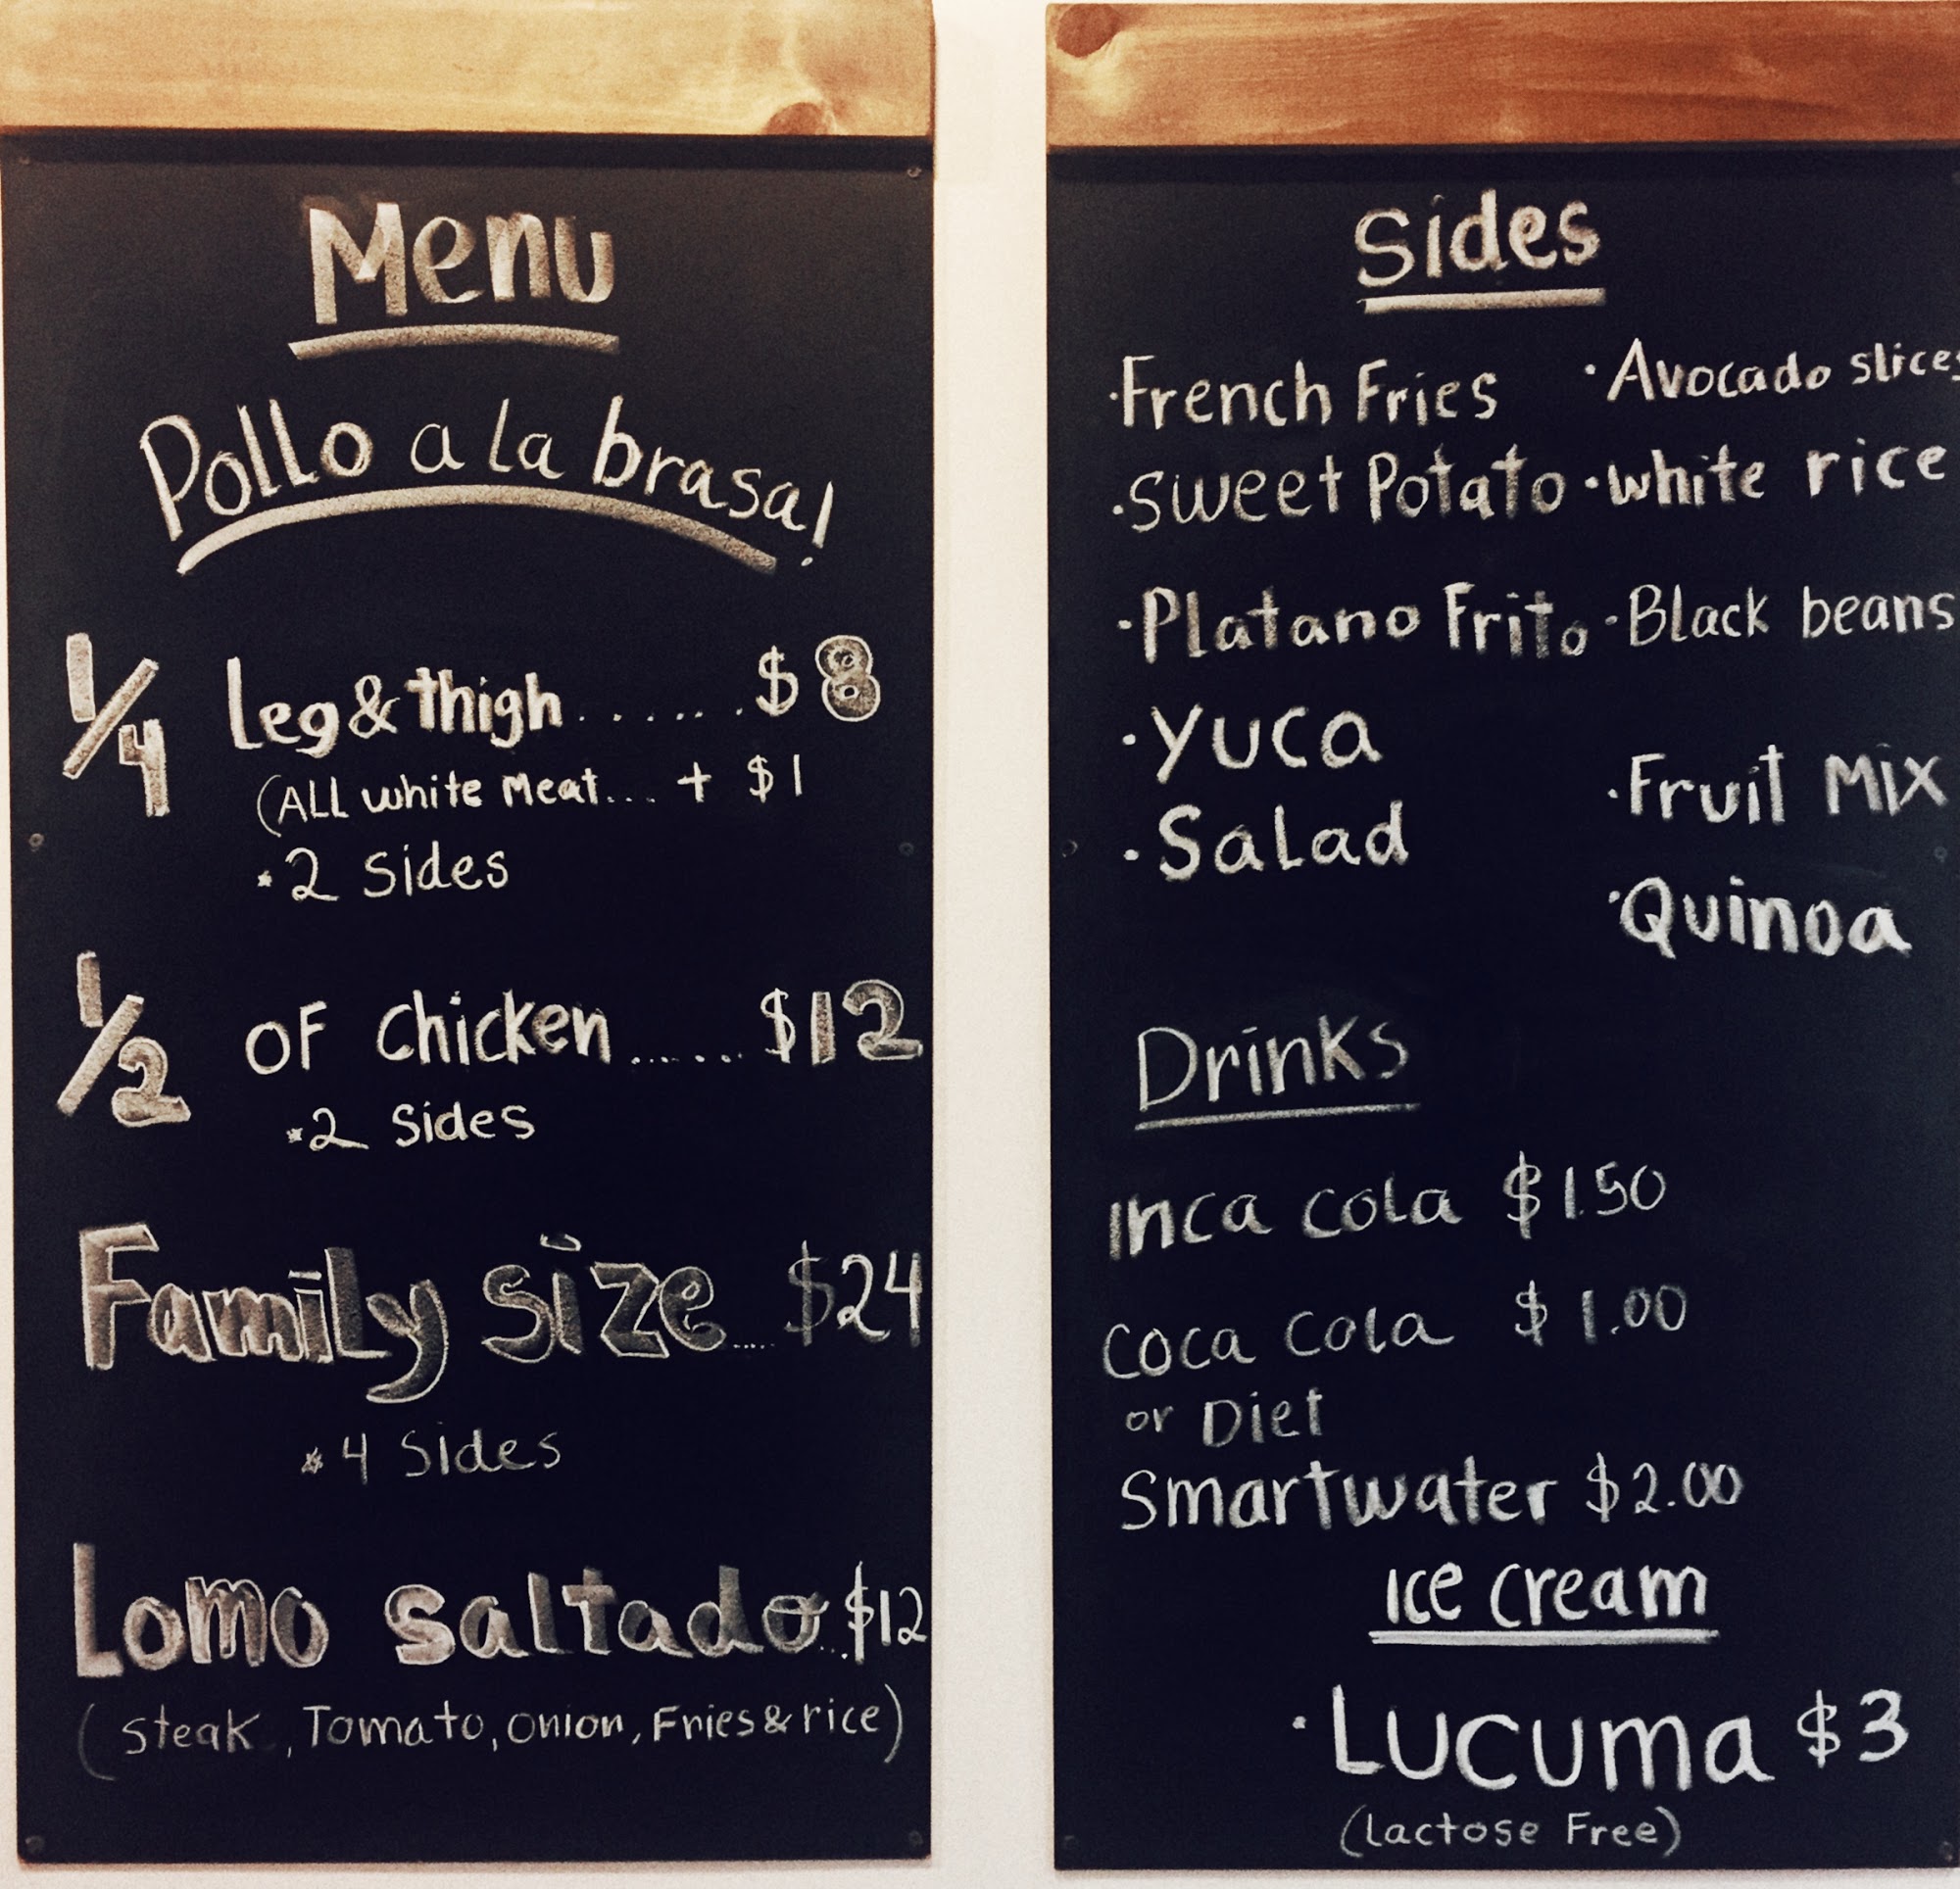 Menu
Pollo a la brasa!
1/4 Leg & thigh ...... $8
(ALL white Meat... + $1
* 2 Sides
1/2 OF Chicken ...... $12
* 2 Sides
Family size .... $24
* 4 Sides
Lomo saltado .. $12
(Steak, Tomato, onion, Fries & rice)
Sides
· French Fries · Avocado slices
· Sweet Potato · white rice
· Platano Frito · Black beans
· Yuca
· Fruit Mix
· Salad
· Quinoa
Drinks
Inca cola $1.50
Coca Cola $1.00
or Diet
Smartwater $2.00
Ice Cream
· Lucuma $3
(Lactose Free)